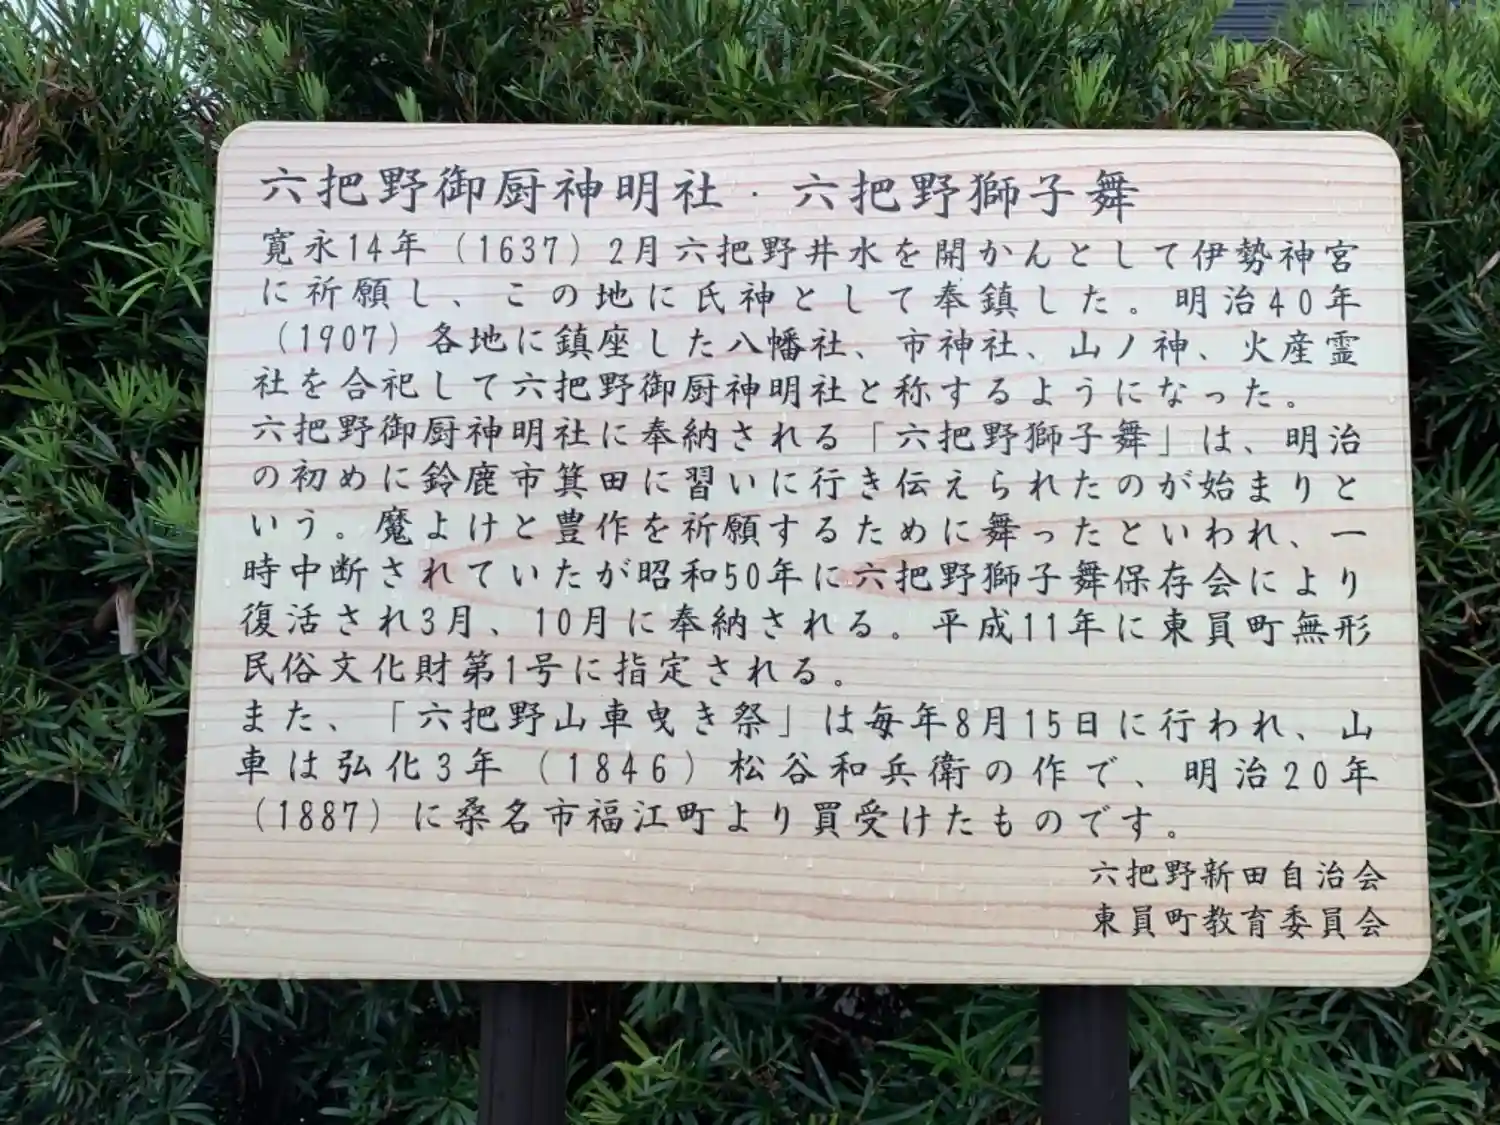 六把野御厨神明社・六把野獅子舞
寛永14年（1637）2月六把野井水を開かんとして伊勢神宮
に祈願し、この地に氏神として奉鎮した。明治40年
（1907）各地に鎮座した八幡社、市神社、山ノ神、火産霊
社を合祀して六把野御厨神明社と称するようになった。
六把野御厨神明社に奉納される「六把野獅子舞」は、明治
の初めに鈴鹿市箕田に習いに行き伝えられたのが始まりと
いう。魔よけと豊作を祈願するために舞ったといわれ、一
時中断されていたが昭和50年に六把野獅子舞保存会により
復活され3月、10月に奉納される。平成11年に東員町無形
民俗文化財第1号に指定される。
また、「六把野山車曳き祭」は毎年8月15日に行われ、山
車は弘化3年（1846）松谷和兵衛の作で、明治20年
（1887）に桑名市福江町より買受けたものです。
六把野新田自治会
東員町教育委員会